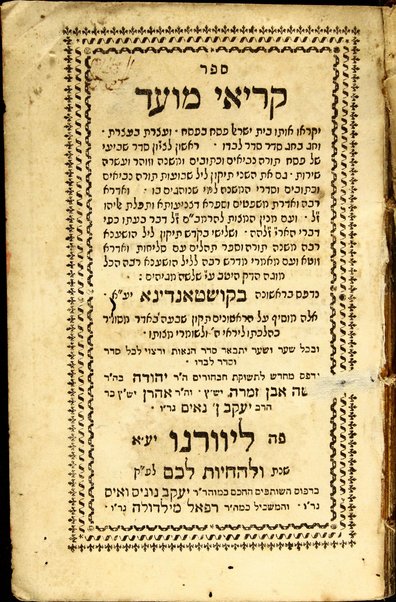 ספר
קריאי מועד
וקראו אותו בית ישראל פסח בפסח ׃ ועצרת בעצרת ׃
וחג בחג סדר סדר לבדו ׃ ראשון לציון סדר שביעי
של פסח תורה נביאים וכתובים ומשנה וזוהר ועשרה
שירות ׃ גם את השני תיקון ליל שבועות תורה נביאים
וכתובים וסדרי המשנה למי שנוהגים בו ׃ ואדרא
רבה ואדרת משפטים וספרא דצניעותא ותפלת אליהו
ז״ל ׃ ועם מנין המצות להרמב״ם ז״ל דבר בעתו כפי
דברי האר״י זלה״ה ׃ ושלישי בקדש תיקון ליל הושענא
רבה משנה תורה וספר תהלים עם סליחות ואדרא
זוטא ועם מאמרי מדרש רבה לליל הושענא רבה הכל
מוגה הדק היטב ע״י שלשה מגיהים ׃
נדפס בראשונה בקושטאנדינא יע״א
אלה מוסיף על הראשונים תיקון שבעה באדר מסודר
כהלכתו ליראי ה׳ ולשומרי מצותו
ובכל שער ושער יתבאר סדר הנאות ורצוי לכל סדר
וסדר לבדו
נדפס מחדש לתשוקת הבחורים ה״ר יהודה בה״ר
משה אבן זמרה, יש״ץ ׃ וה״ר אהרן יש״ץ בר
הרב יעקב ן׳ נאים ׃ נר״ו
פה ליוורנו יע״א
שנת ולהחיות לכם לפ״ק
בדפוס השותפים החכם כמוהר״ר יעקב נוניס ואיס
נר״ו ׃ והמשכיל כמה״ר רפאל מילדולה נר״ו ׃